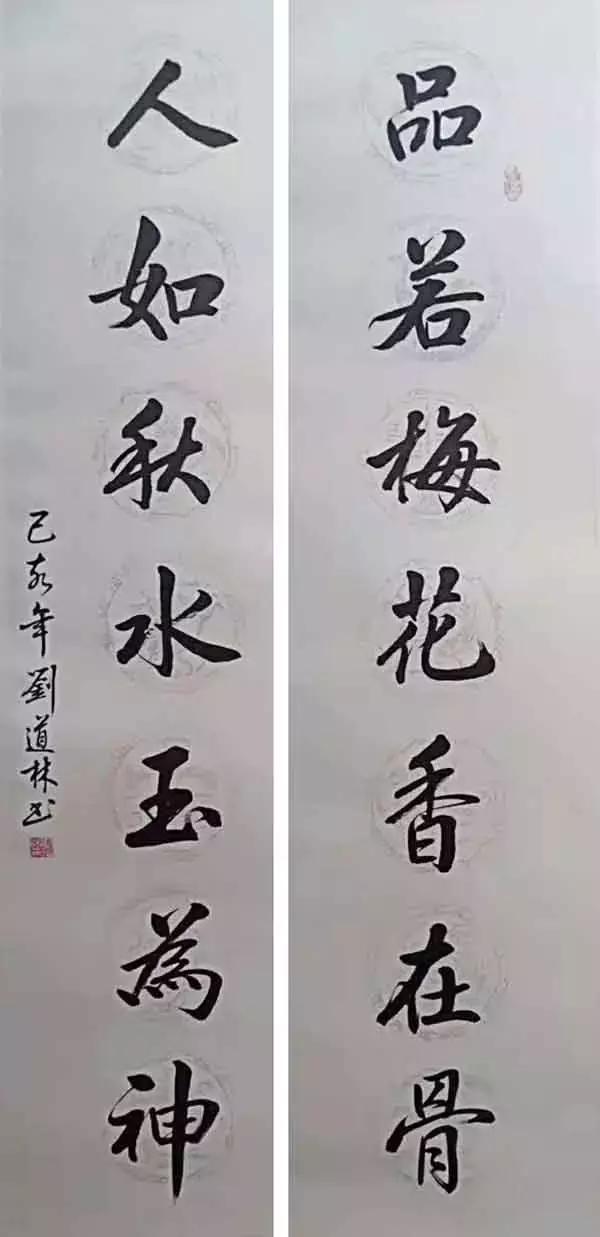 品若梅花香在骨
人如秋水玉為神
己亥年劉道林书